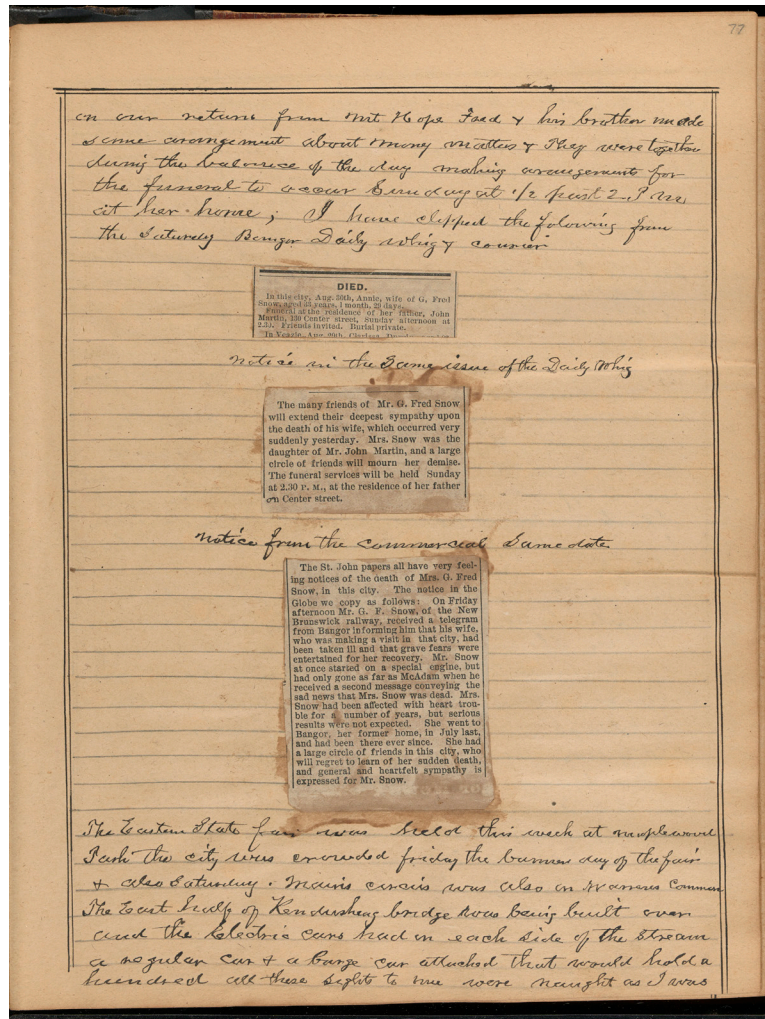 77
on our return from Mt Hope Fred & his brother made
some arangement about money matters & They were together
during the balance of the day making arangements for
the funeral to occur Sunday at ½ past 2 P M
at her home; I have clipped the folowing from
the Saturday Bangor Daily Whig & Courier
DIED.
In this city, Aug. 30th, Annie, wife of G. Fred
Snow, aged 33 years, 1 month, 29 days.
Funeral at the residence of her father, John
Martin, 130 Center street, Sunday afternoon at
2.30. Friends invited. Burial private.
In Veazie, Aug. 29th,
Notice in the Same issue of the Daily Whig
The many friends of Mr. G. Fred Snow
will extend their deepest sympathy upon
the death of his wife, which occurred very
suddenly yesterday. Mrs. Snow was the
daughter of Mr. John Martin, and a large
circle of friends will mourn her demise.
The funeral services will be held Sunday
at 2.30 P. M., at the residence of her father
on Center street.
Notice from the Commercial Same date
The St. John papers all have very feel-
ing notices of the death of Mrs. G. Fred
Snow, in this city. The notice in the
Globe we copy as follows: On Friday
afternoon Mr. G. F. Snow, of the New
Brunswick railway, received a telegram
from Bangor informing him that his wife,
who was making a visit in that city, had
been taken ill and that grave fears were
entertained for her recovery. Mr. Snow
at once started on a special engine, but
had only gone as far as McAdam when he
received a second message conveying the
sad news that Mrs. Snow was dead. Mrs.
Snow had been affected with heart trou-
ble for a number of years, but serious
results were not expected. She went to
Bangor, her former home, in July last,
and had been there ever since. She had
a large circle of friends in this city, who
will regret to learn of her sudden death,
and general and heartfelt sympathy is
expressed for Mr. Snow.
The Eastern State fair was held this week at maplewood
Park the city was crowded friday the banner day of the fair
& also Saturday. Mains circus was also on Warrens Common
The East half of Kenduskeag bridge was being built over
and the Electric cars had on each side of the stream
a regular car & a barge car attached that would hold a
hundred all these sights to me were naught as I was